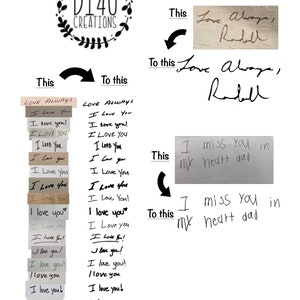 DI4U
CREATIONS
This
To this
This
To this
Love Always,
Randall
Love Always,
Randall
This
To this
I miss you in
my heart dad
I miss you in
my heart dad
LOVE ALWAYS
LOVE ALWAYS
I love you
I love you
I love you!
I love you!
I Love You
I Love You
I love you
I love you
I love you
I love you
I Love You
I Love You
I love you
I love you
I Love You
I Love You
I love you
I love you
I love you
I love you
I Love You!
I Love You!
I love you!
I love you!
I love you!
I love you!
I love you
I love you
I love you!
I love you!